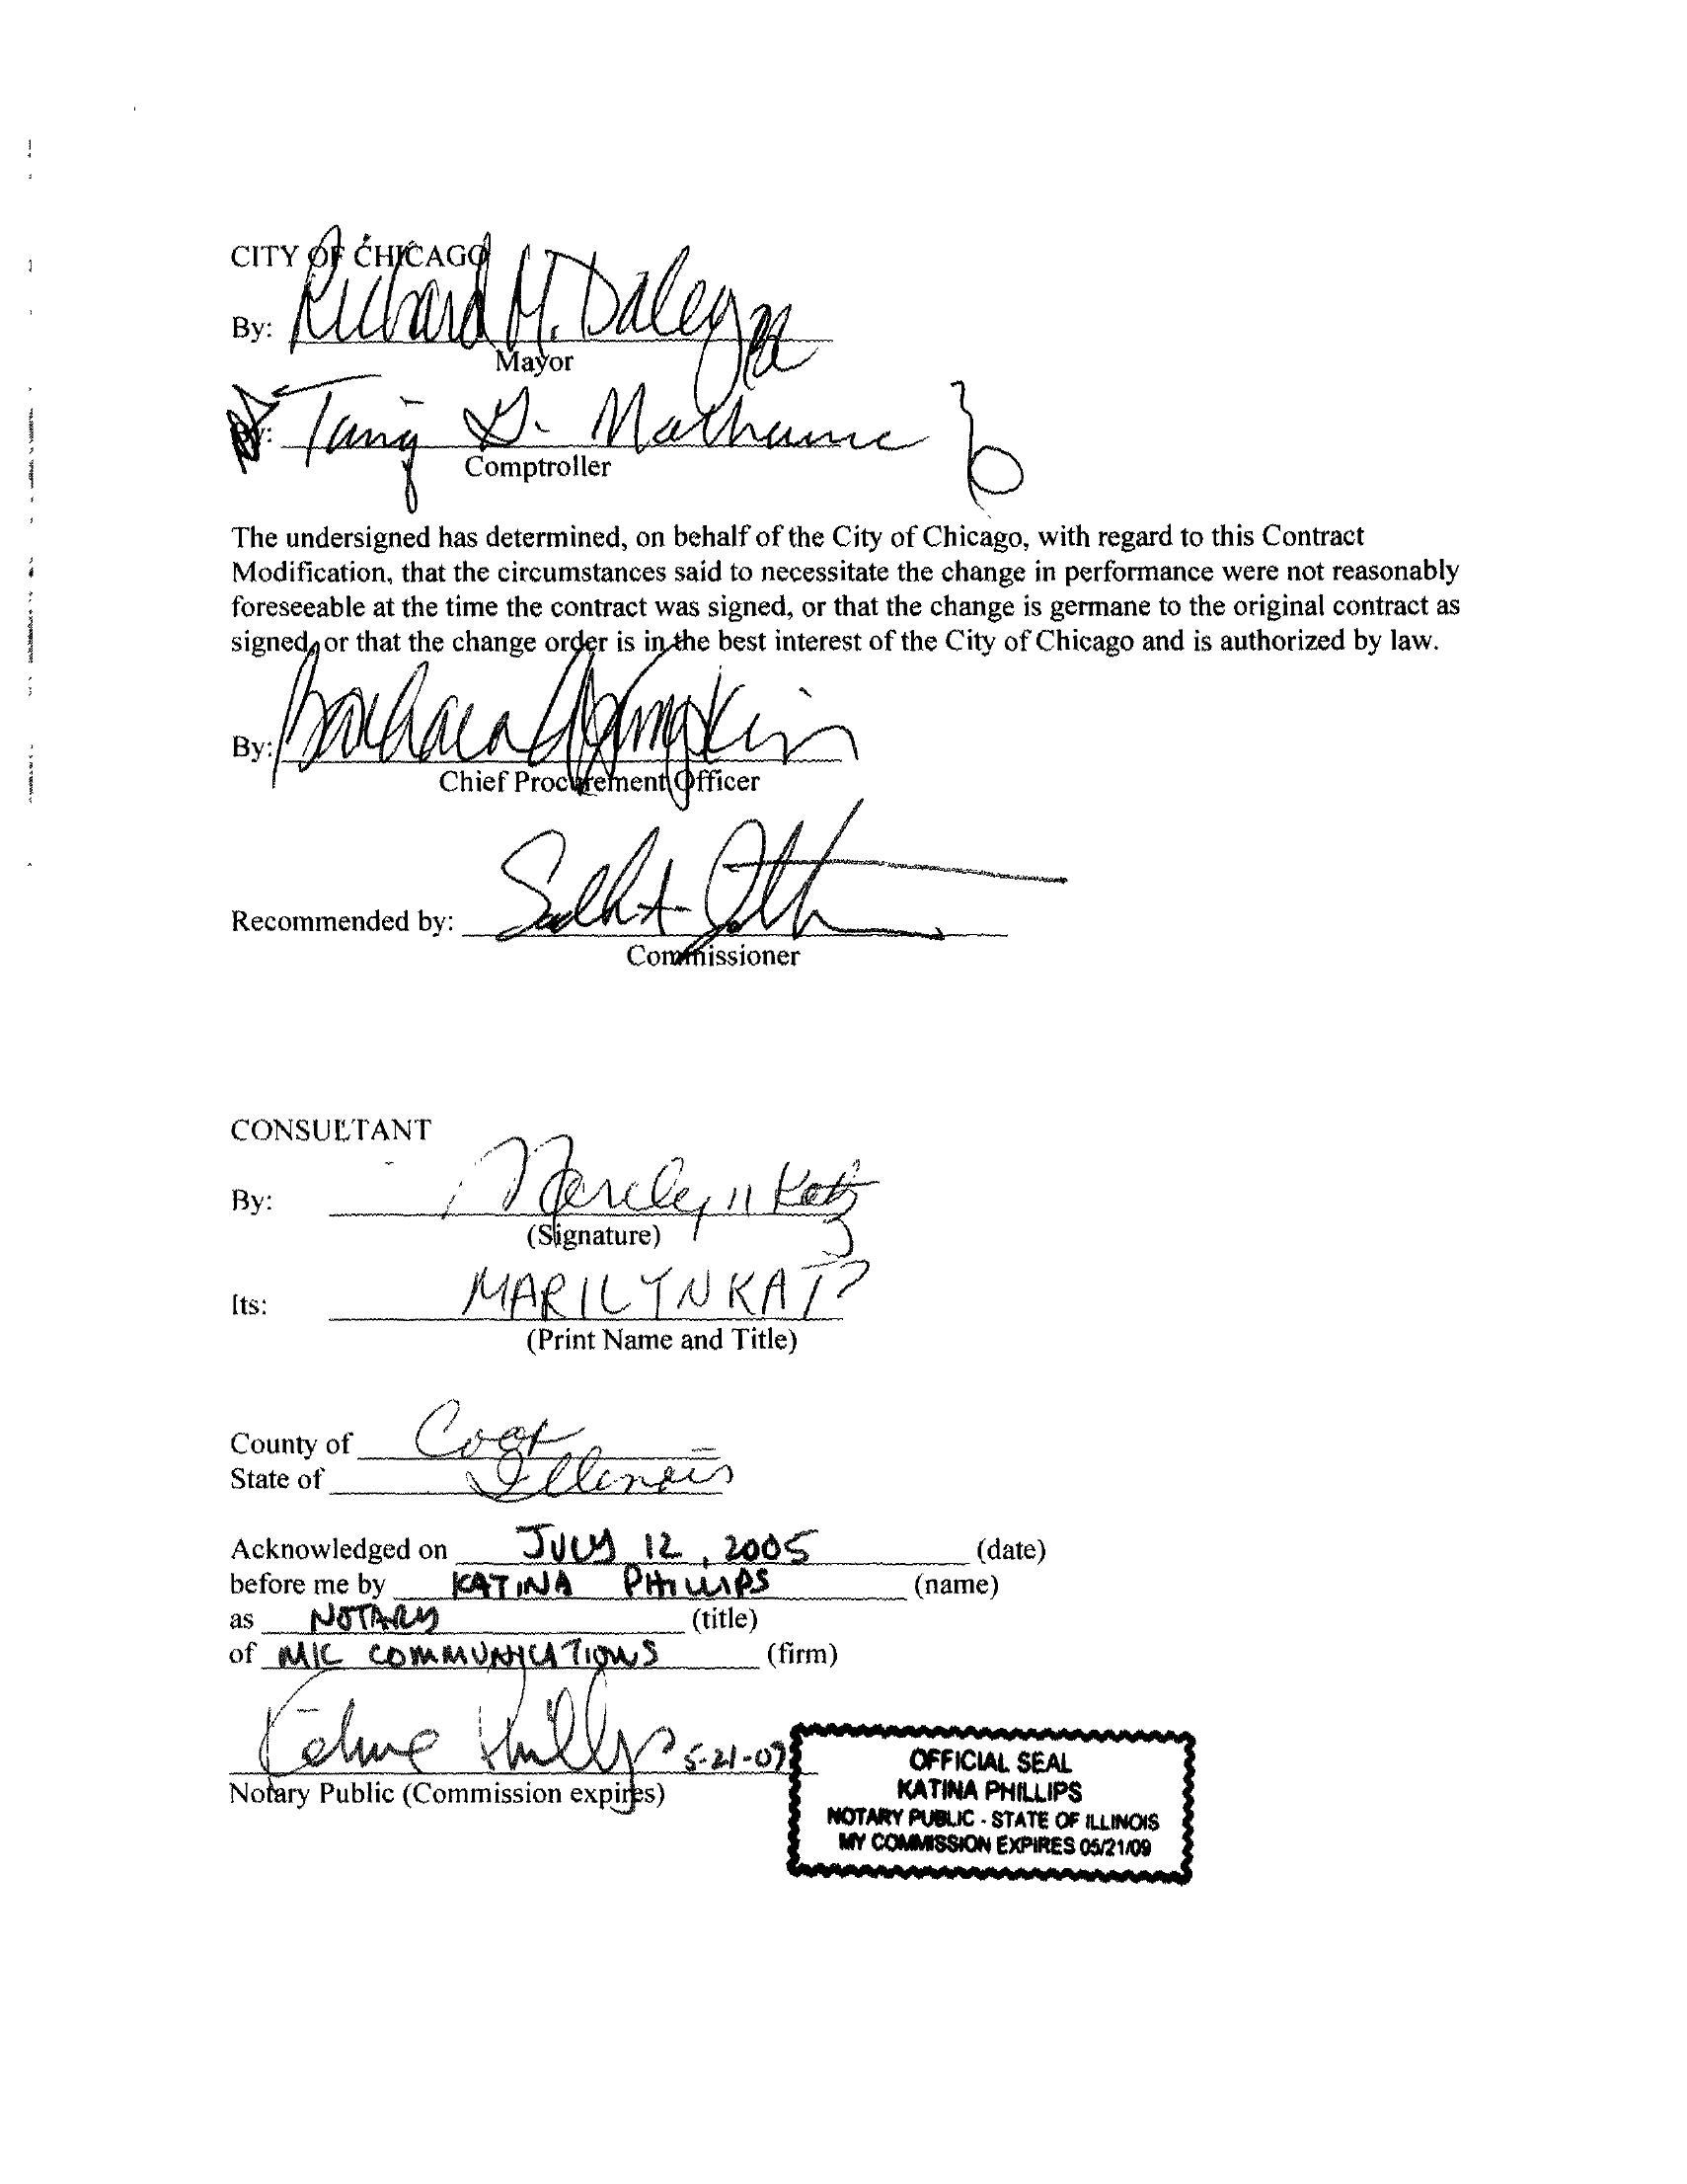 CITY OF CHICAGO
By: Richard M. Daley
Mayor
By: D.
Comptroller
The undersigned has determined, on behalf of the City of Chicago, with regard to this Contract
Modification, that the circumstances said to necessitate the change in performance were not reasonably
foreseeable at the time the contract was signed, or that the change is germane to the original contract as
signed, or that the change order is in the best interest of the City of Chicago and is authorized by law.
By: Barbara
Chief Procurement Officer
Recommended by:
Commissioner
CONSULTANT
By: Marilyn Katz
(Signature)
Its: MARILYN KATZ
(Print Name and Title)
County of Cook
State of Illinois
Acknowledged on JULY 12, 2005 (date)
before me by KATINA PHILLIPS (name)
as NOTARY (title)
of COMMUNICATIONS (firm)
Katina Phillips 5-21-09
Notary Public (Commission expires)
OFFICIAL SEAL
KATINA PHILLIPS
NOTARY PUBLIC - STATE OF ILLINOIS
MY COMMISSION EXPIRES 05/21/09